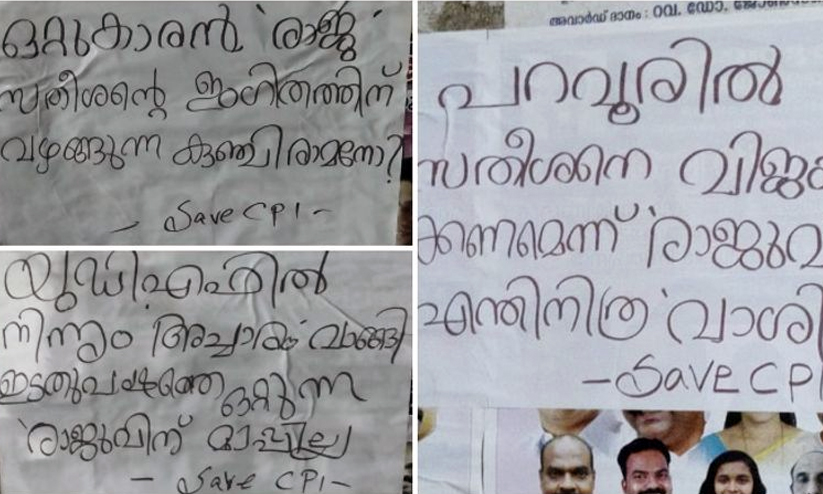 ഒറ്റുകാരൻ 'രാജു'
സതീശന്റെ ഇംഗിതത്തിന്
വഴങ്ങുന്ന കുഞ്ഞിരാമനോ?
- Save CPI -
യുഡിഎഫിൽ
നിന്നും അച്ചാരം വാങ്ങി
ഇടതുപക്ഷത്തെ ഒറ്റുന്ന
'രാജുവിന്' മാപ്പില്ല
- Save CPI -
അവാർഡ് ദാനം : റവ. ഡോ.
പറവൂരിൽ
സതീശനെ
ക്കണമെന്ന് 'രാജുവ
എന്തിനിത്ര വാശി
- Save CPI